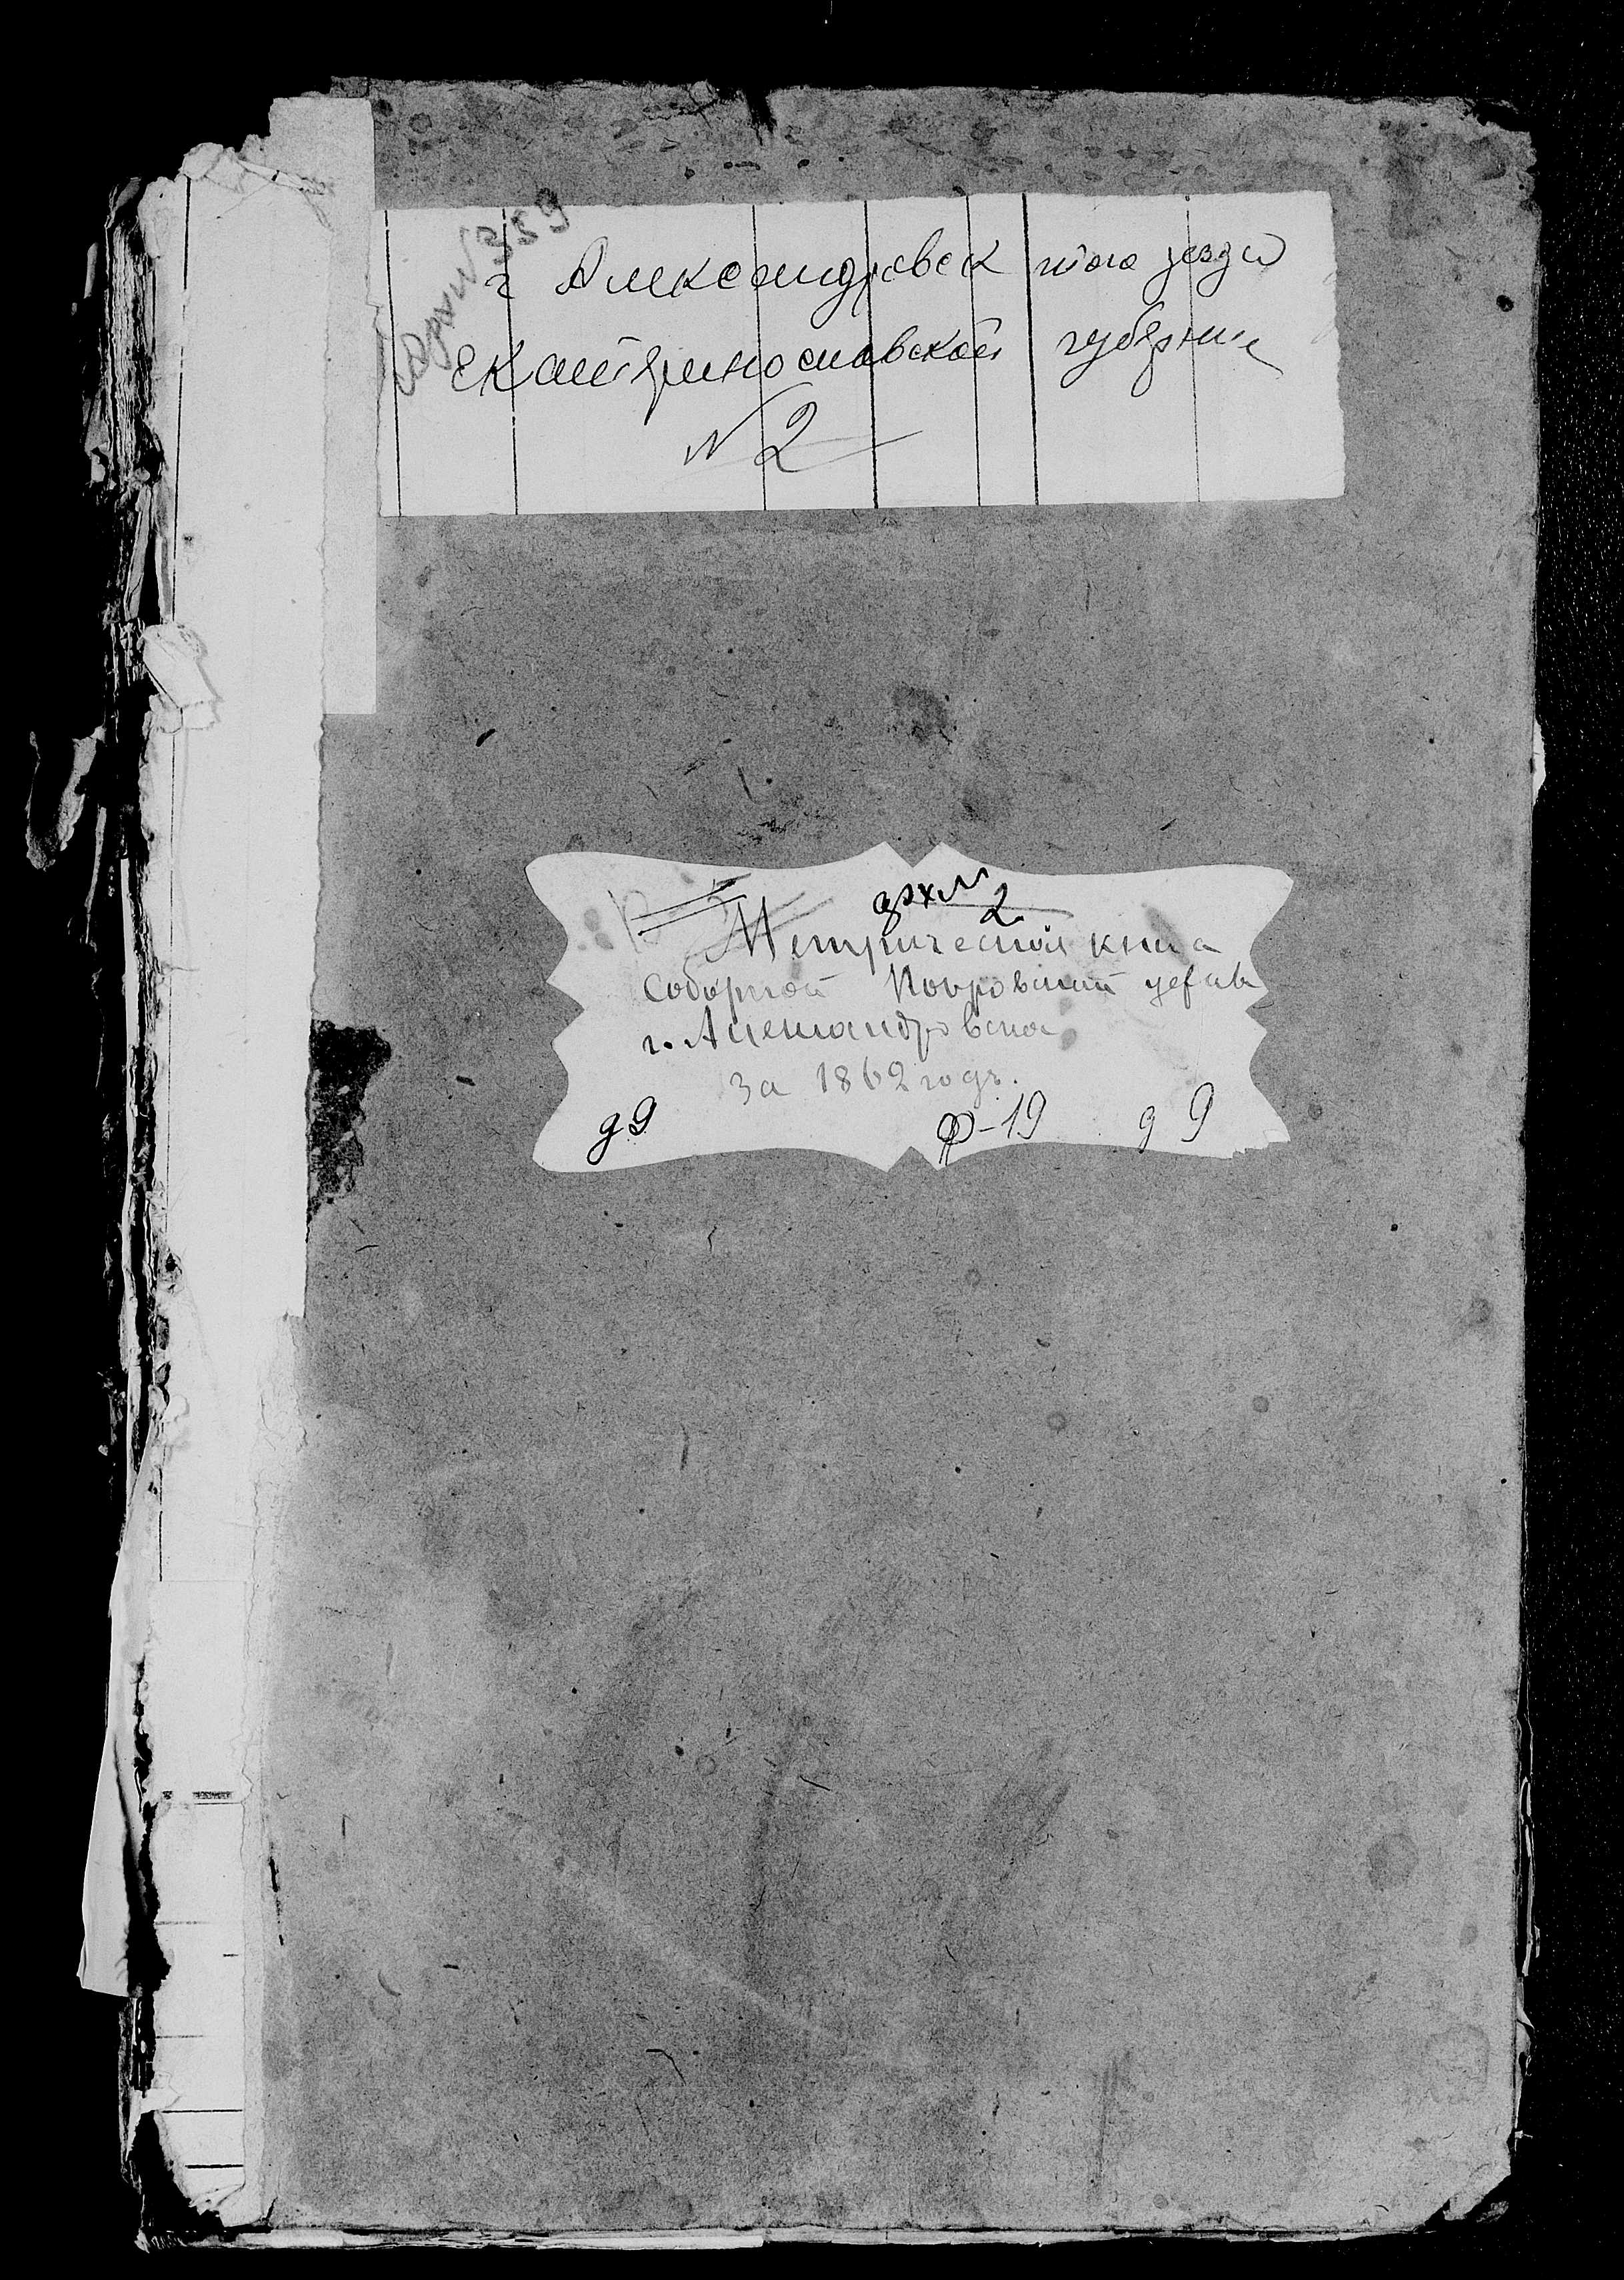 арх N 359
г Александровск того уезда
Екатеринославской губернии
N 2
арх N 2
Метрическая книга
Соборной Покровской церкви
г. Александровска
за 1862 годъ.
д 9 Ф-19 д 9